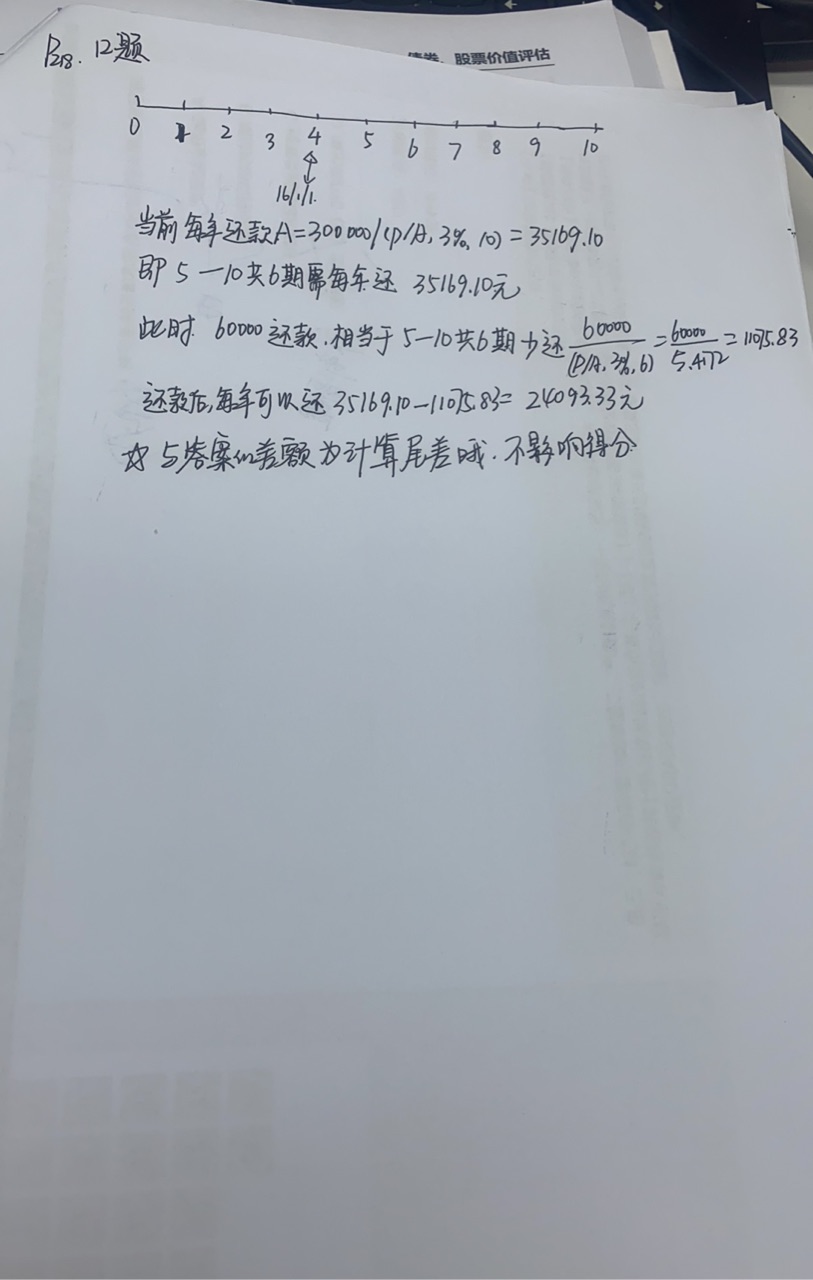 P218. 12题
债券、股票价值评估
0 1 2 3 4 5 6 7 8 9 10
16/1/1.
当前每年还款A=300000/(P/A,3%,10)=35169.10
即5—10共6期需每年还 35169.10元
此时60000还款,相当于5—10共6期少还 60000/(P/A,3%,6) = 60000/5.4172 = 11075.83
还款后,每年可以还35169.10—11075.83= 24093.33元
☆与答案的差额为计算尾差哦.不影响得分